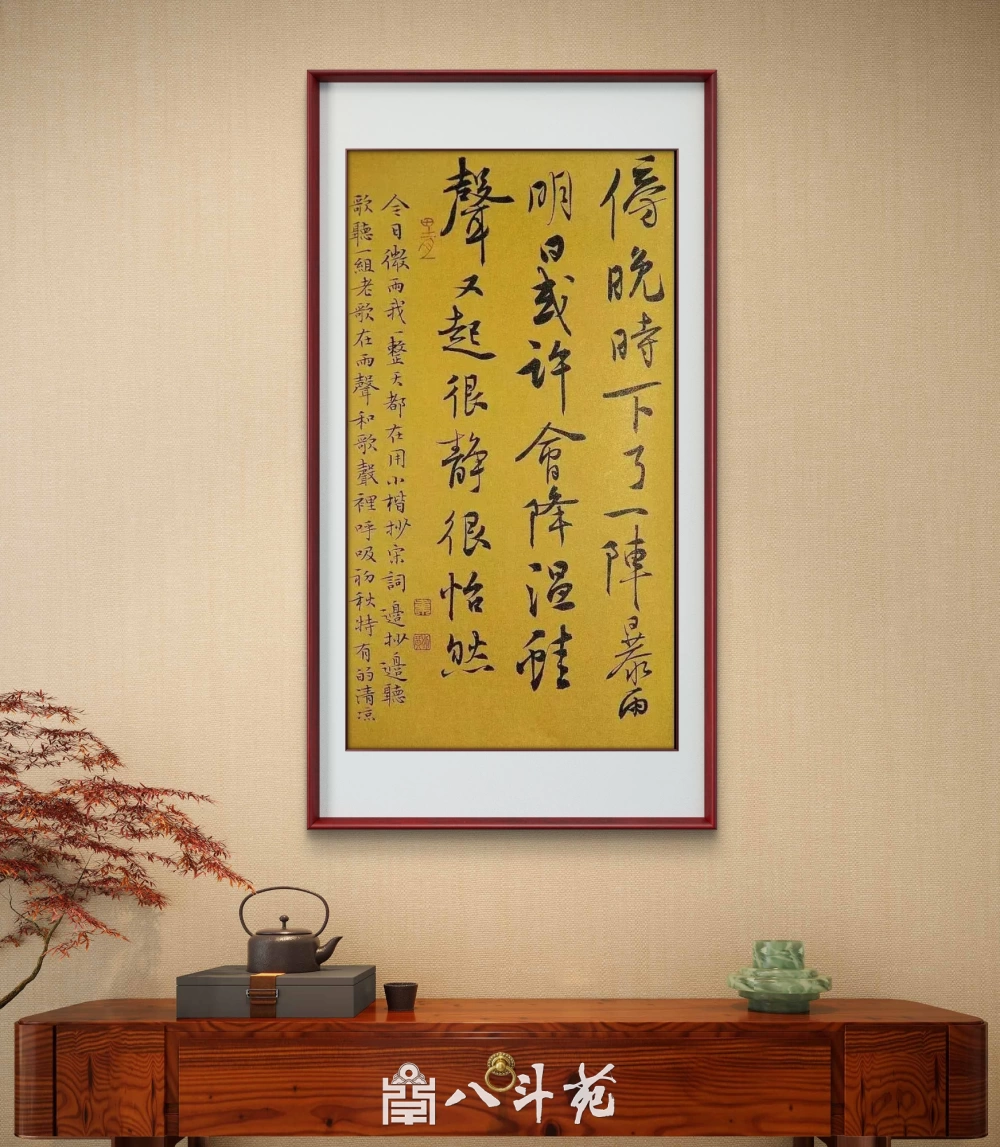 傍晚時下了一陣暴雨
明日或許會降温蛙
聲又起很静很怡然
今日微雨我一整天都在用小楷抄宋詞邊抄邊聽
歌聽一組老歌在雨聲和歌聲裡呼吸初秋特有的清涼
八斗苑